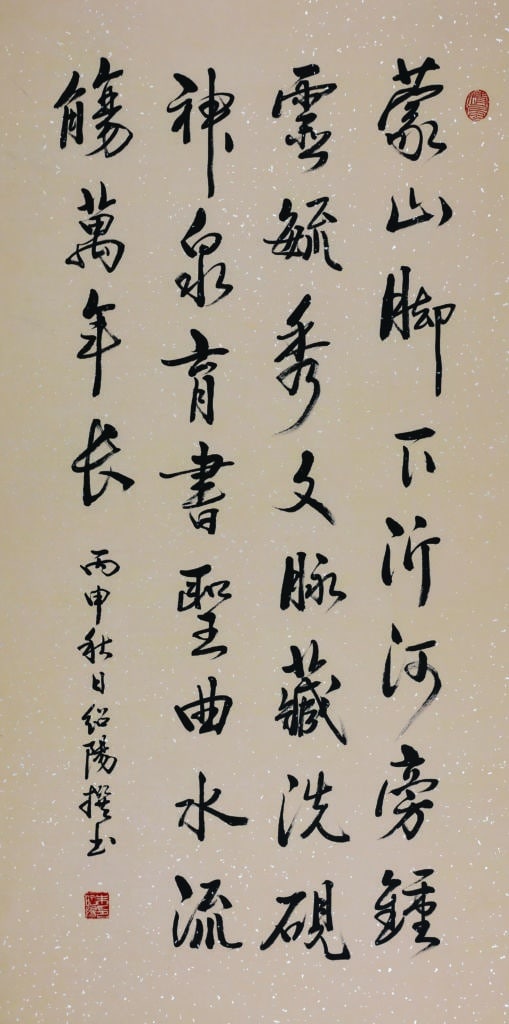 蒙山脚下沂河旁鍾
靈毓秀文脉藏洗硯
神泉育書聖曲水流
觴萬年长
丙申秋日绍陽撰书